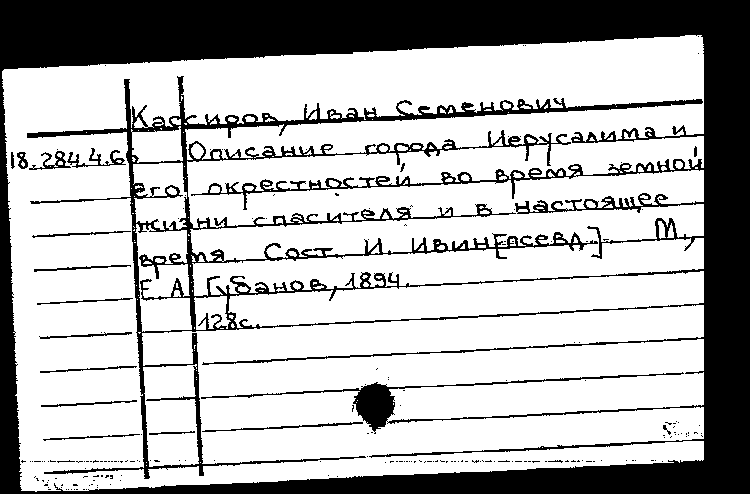 Кассиров, Иван Семенович
18.284.4.66 Описание города Иерусалима и
его окрестностей во время земной
жизни спасителя и в настоящее
время. Сост. И. Ивин[псевд.]. М.,
Е. А. Губанов, 1894.
128с.